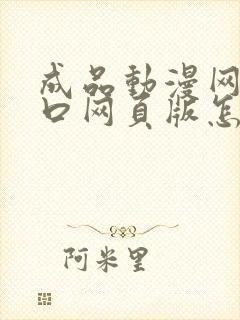 成品動漫网
口网页版怎
阿米里